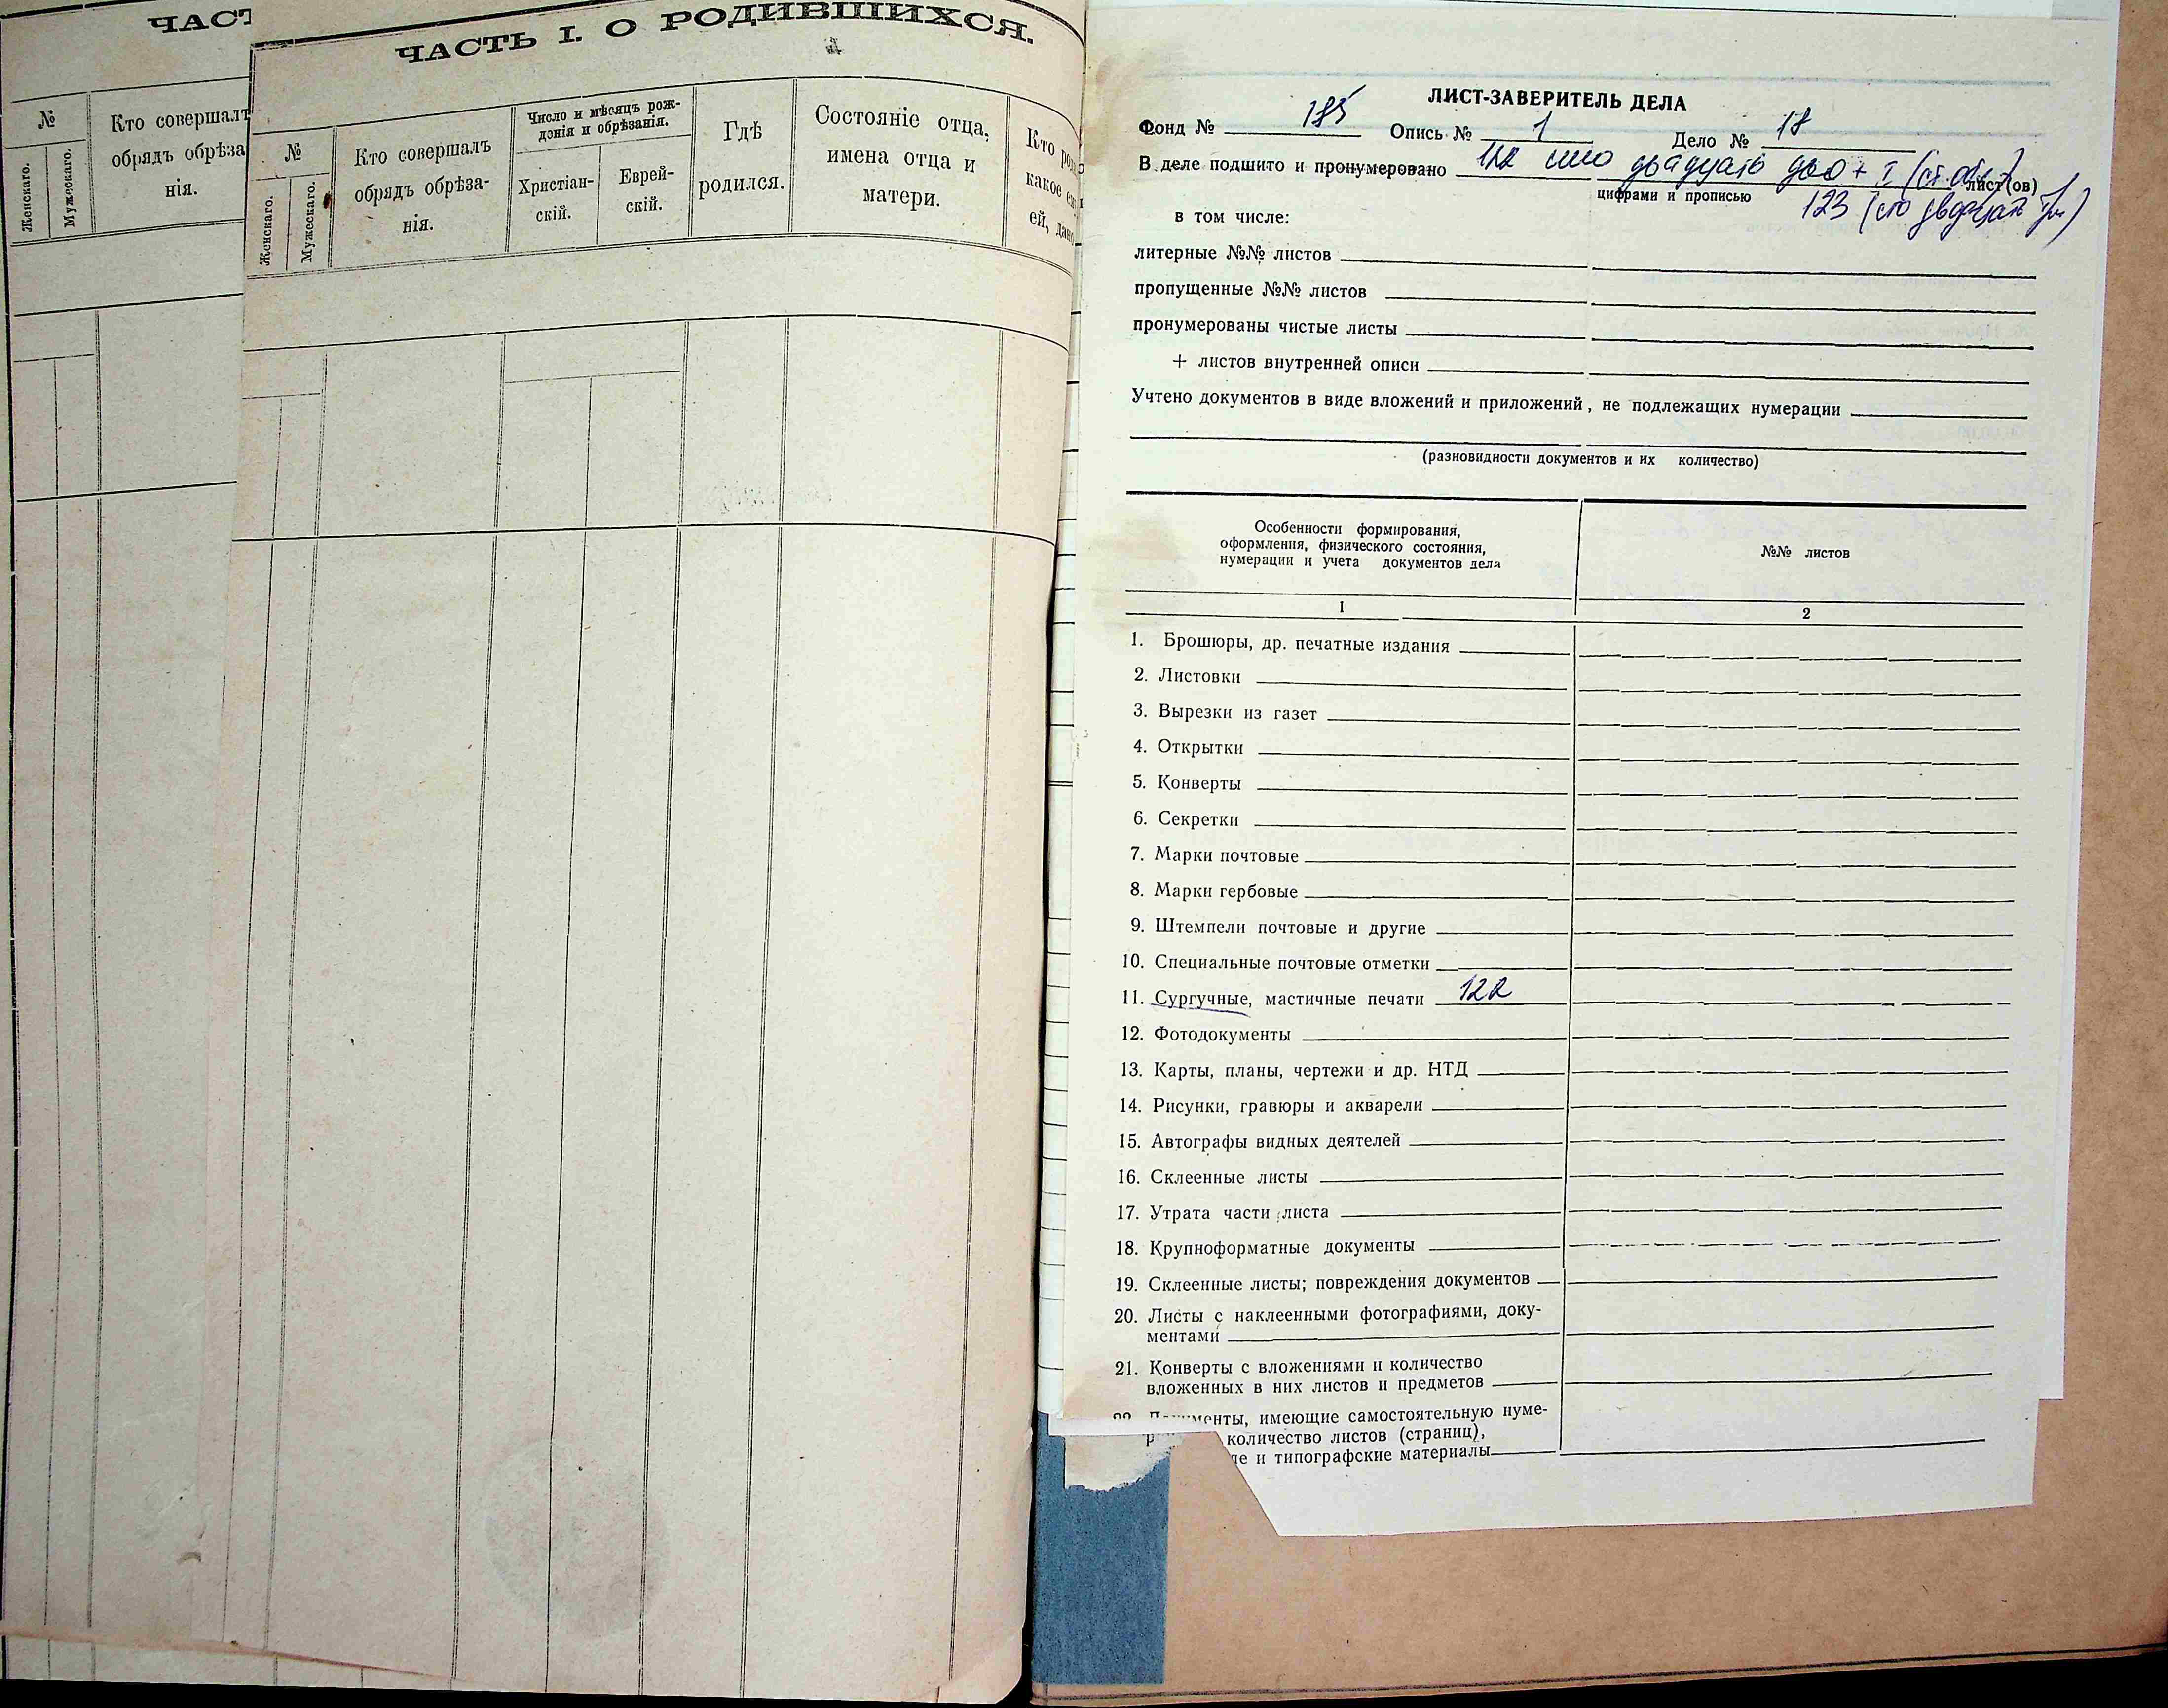 ЧАСТ
№
Женскаго.
Мужескаго.
Кто совершалъ
обрядъ обрѣза
нія.
ЧАСТЬ I. О РОДИВШИХСЯ.
№
Женскаго.
Мужескаго.
Кто совершалъ
обрядъ обрѣза-
нія.
Число и мѣсяцъ рож-
денія и обрѣзанія.
Христіан-
скій.
Еврей-
скій.
Гдѣ
родился.
Состояніе отца,
имена отца и
матери.
Кто
какое
ей,
ЛИСТ-ЗАВЕРИТЕЛЬ ДЕЛА
Фонд № 185 Опись № 1 Дело № 18
В деле подшито и пронумеровано 122 сто двадцать два + I (ст. обл.) лист(ов)
цифрами и прописью
123 (сто двадцать три)
в том числе:
литерные №№ листов
пропущенные №№ листов
пронумерованы чистые листы
+ листов внутренней описи
Учтено документов в виде вложений и приложений, не подлежащих нумерации
(разновидности документов и их количество)
Особенности формирования,
оформления, физического состояния,
нумерации и учета документов дела
№№ листов
1
2
1. Брошюры, др. печатные издания
2. Листовки
3. Вырезки из газет
4. Открытки
5. Конверты
6. Секретки
7. Марки почтовые
8. Марки гербовые
9. Штемпели почтовые и другие
10. Специальные почтовые отметки
11. Сургучные, мастичные печати 122
12. Фотодокументы
13. Карты, планы, чертежи и др. НТД
14. Рисунки, гравюры и акварели
15. Автографы видных деятелей
16. Склеенные листы
17. Утрата части листа
18. Крупноформатные документы
19. Склеенные листы; повреждения документов
20. Листы с наклеенными фотографиями, доку-
ментами
21. Конверты с вложениями и количество
вложенных в них листов и предметов
22. Документы, имеющие самостоятельную нуме-
количество листов (страниц),
и типографские материалы